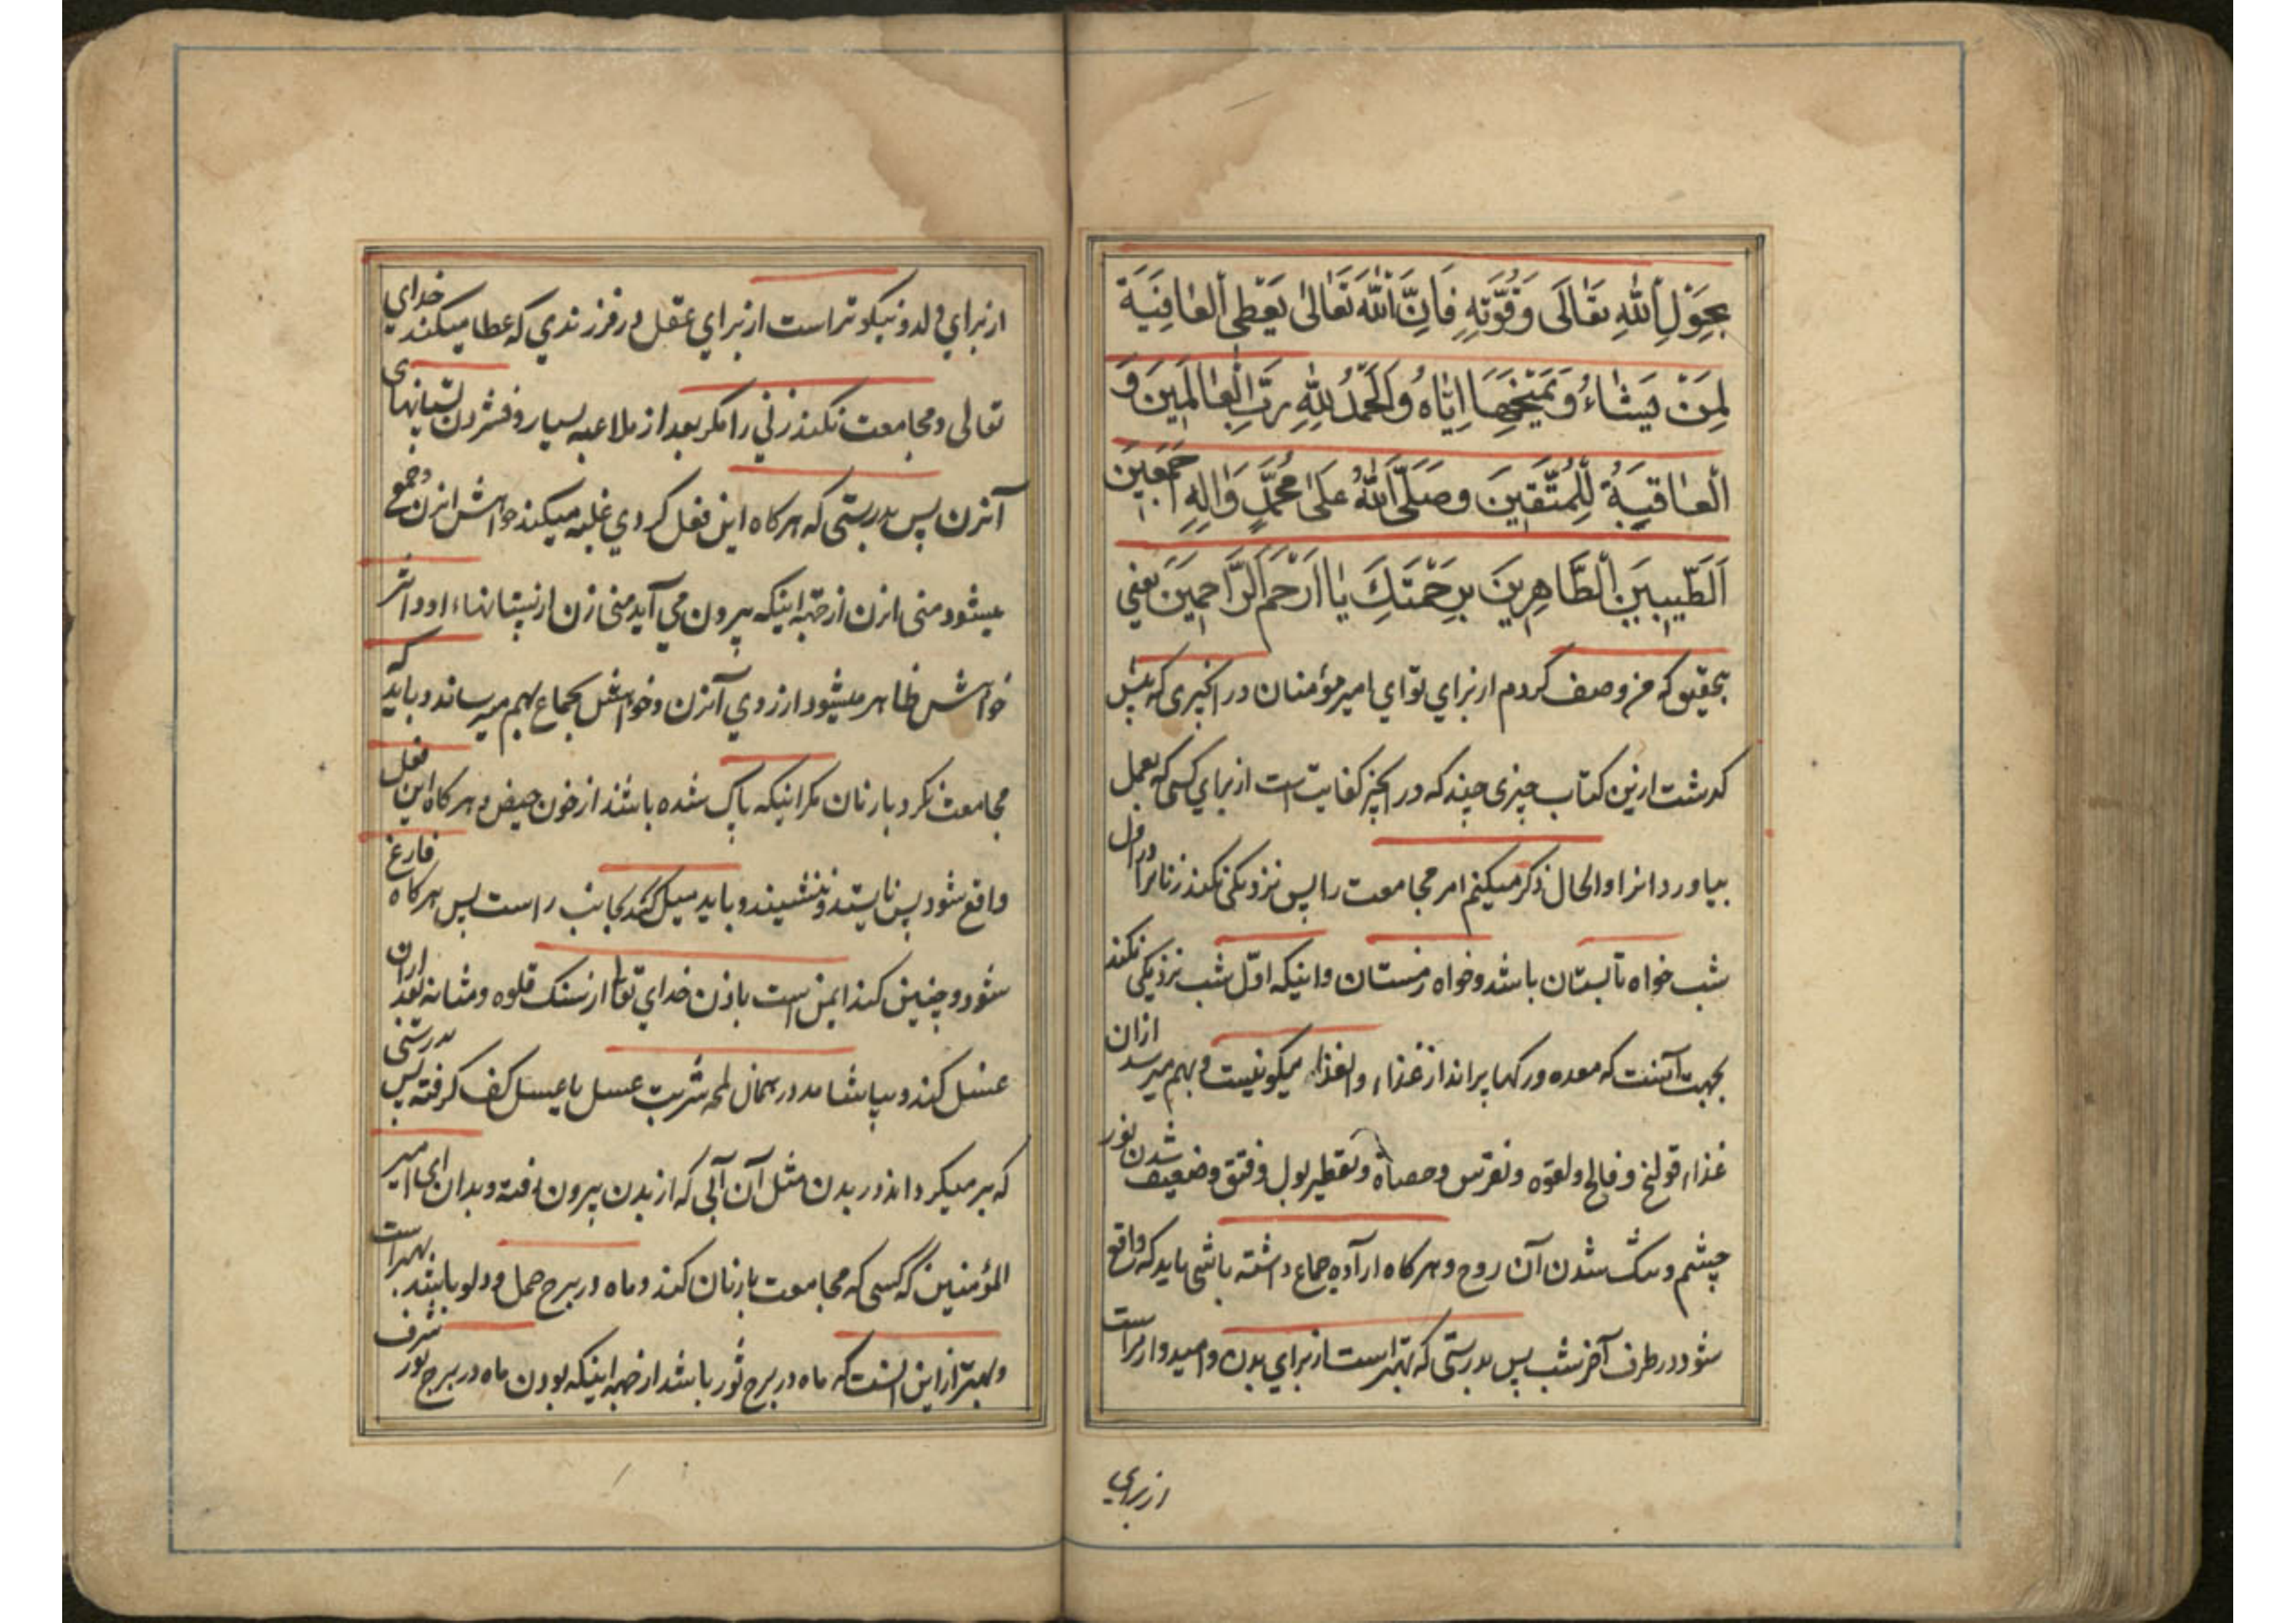 بِحَوْلِ اللهِ تَعَالَى وَقُوَّتِهِ فَاِنَّ اللهَ تَعَالَى يُعْطِي الْعَافِيَةَ
لِمَنْ يَشَاءُ وَيَمْنَحُهَا اِيَّاهُ وَالْحَمْدُ لِلّهِ رَبِّ الْعَالَمِينَ وَ
الْعَاقِبَةُ لِلْمُتَّقِينَ وَصَلَّى اللهُ عَلَى مُحَمَّدٍ وَالِهِ اَجْمَعِينَ
اَلطَّيِّبِينَ الطَّاهِرِينَ بِرَحْمَتِكَ يَا اَرْحَمَ الرَّاحِمِينَ يعني
بتحقيق كه من وصف كردم از براي تو اي امير مؤمنان در انچيزى كه پيش
كذشت ازين كتاب چيزى چند كه در انچيز كفايت است از براي كسى كه بعمل
بياورد انرا والحال ذكر ميكنم امر مجامعت را پس نزديكى نكند زنانرا در اول
شب خواه تابستان باشد وخواه زمستان واينكه اول شب نزديكى نكند
بجهت آنست كه معده وركها پراند از غذاء وانغذاء نيكو نيست وبهم ميرسد ازان
غذاء قولنج وفالج ولقوه ونقرس وحصاة وتقطير بول وفتق وضعيف شدن نور
چشم وتنك شدن آن روح وهركاه اراده جماع داشته باشى بايد كه واقع
شود در طرف آخر شب پس بدرستى كه بهتر است از براي بدن واميدوارتر است
از براي
از براي ولد ونيكوتر است از براي عقل در فرزندي كه عطا ميكند خداي
تعالى ومجامعت نكند زني را مكر بعد از ملاعبه بسيار وفشردن پستانهاى
آنزن پس بدرستى كه هركاه اين فعل كردي غلبه ميكند خواهش انزن وجمع
ميشود منى انزن از جهة اينكه بيرون مي آيد منى زن از پستانهاء او واثر
خواهش ظاهر ميشود از روي آنزن وخواهش بجماع بهم ميرساند وبايد كه
مجامعت نكرد بازنان مكر اينكه پاك شده باشند از خون حيض وهركاه اين فعل
واقع شود پس نايستد وننشيند وبايد ميل كند بجانب راست پس هركاه فارغ
شود وچنين كند ايمن است باذن خداي تعالى از سنك قلوه ومثانه بعد ازان
غسل كند وبياشامد در همان لمحه شربت عسل با عسل كف كرفته پس بدرستى
كه بر ميكرداند در بدن مثل آن آبى كه از بدن بيرون رفته وبدان اى امير
المؤمنين كه كسى كه مجامعت بازنان كند وماه در برج حمل ودلو باشد بهتر است
وبهتر از اين آنست كه ماه در برج ثور باشد از جهة اينكه بودن ماه در برج ثور شرف